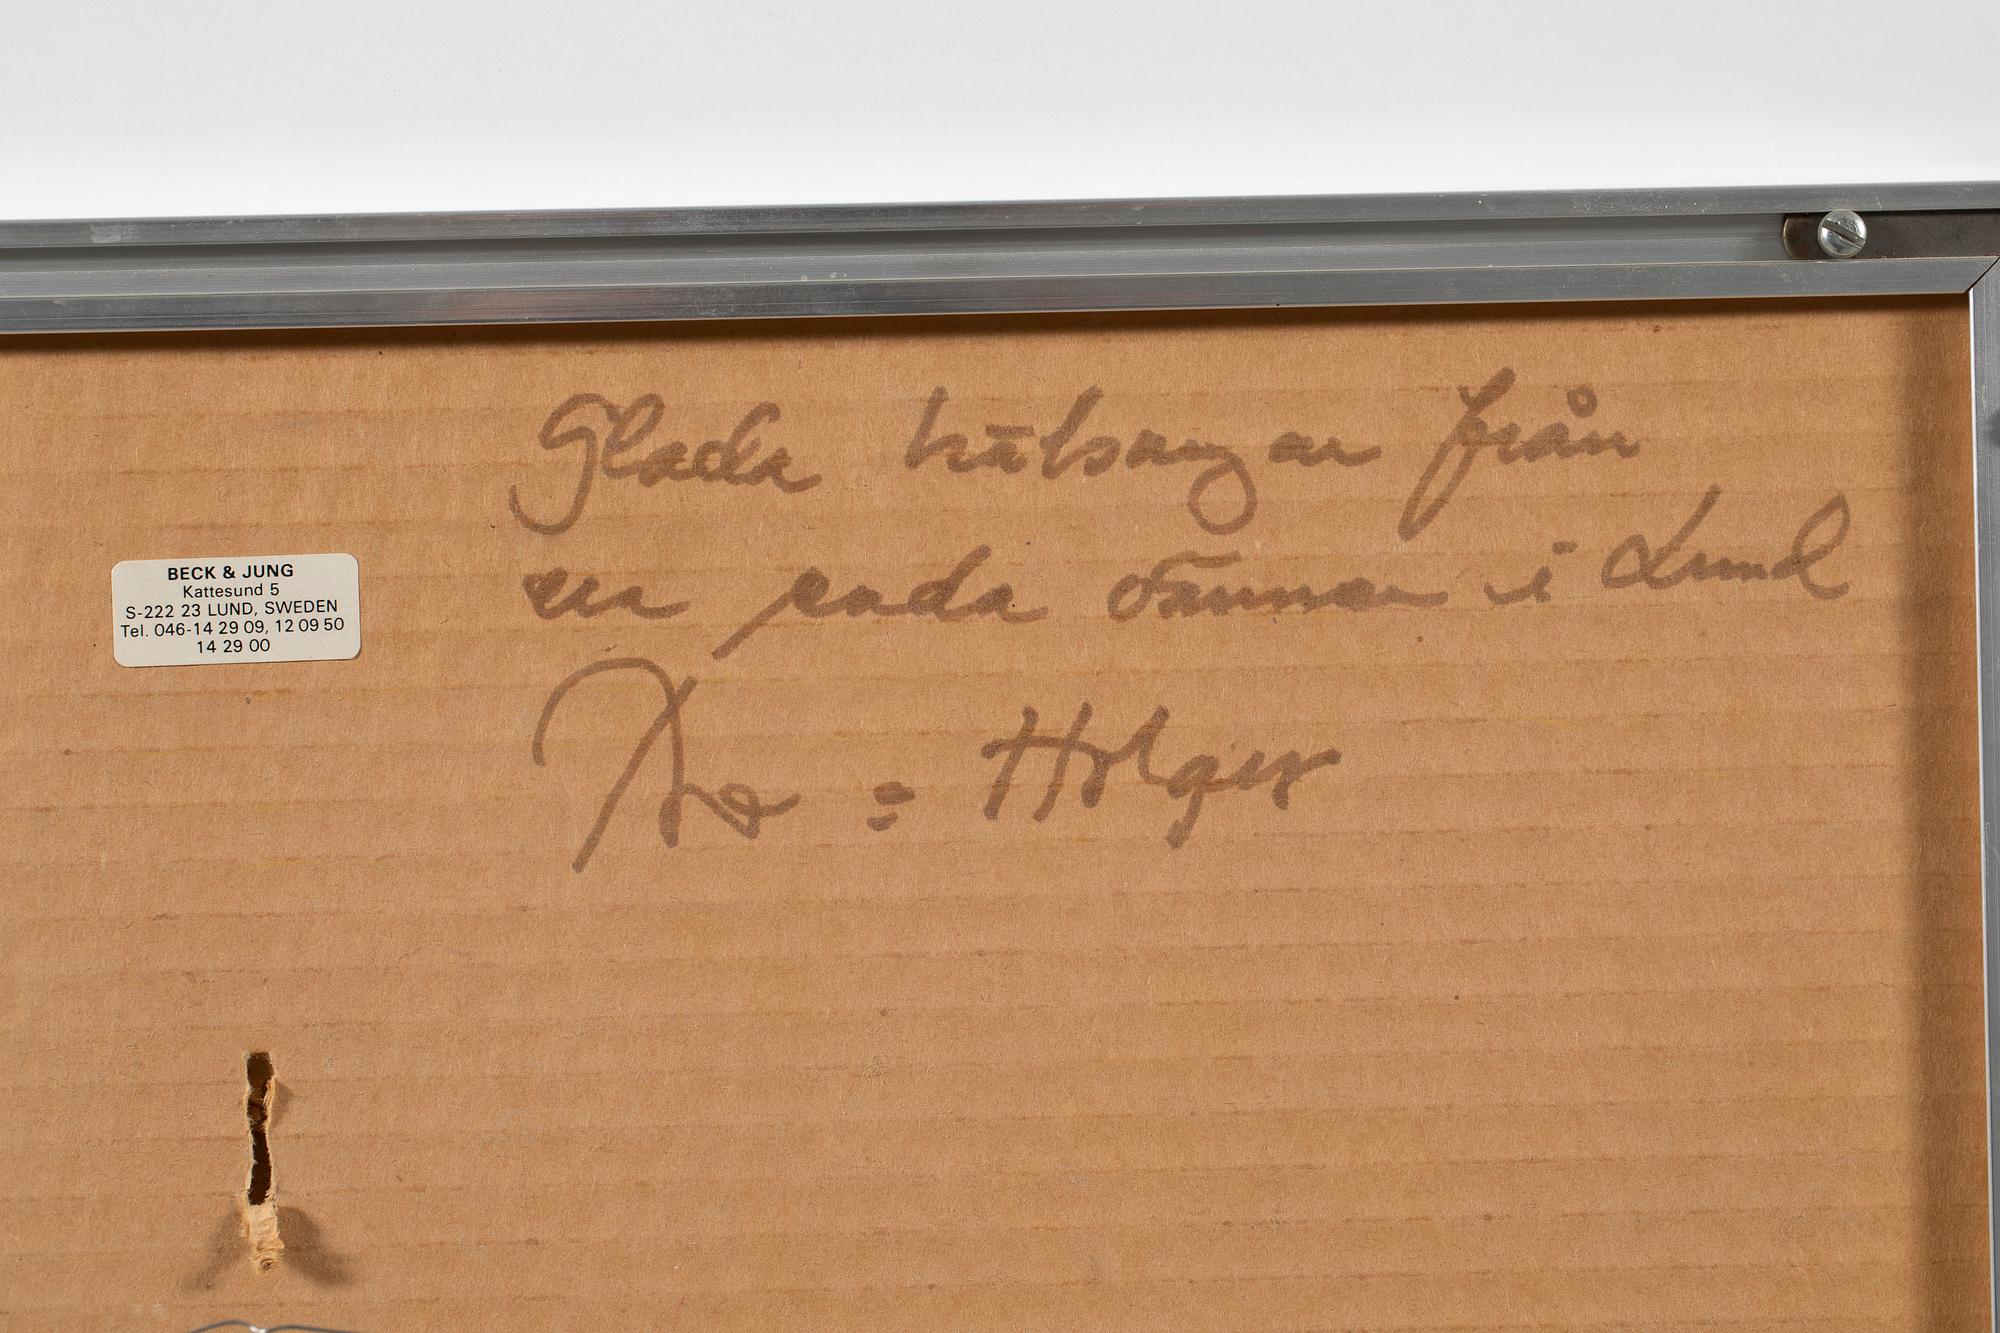 Glada hälsningar från
era vänner i Lund
Holger
BECK & JUNG
Kattesund 5
S-222 23 LUND, SWEDEN
Tel. 046-14 29 09, 12 09 50
14 29 00